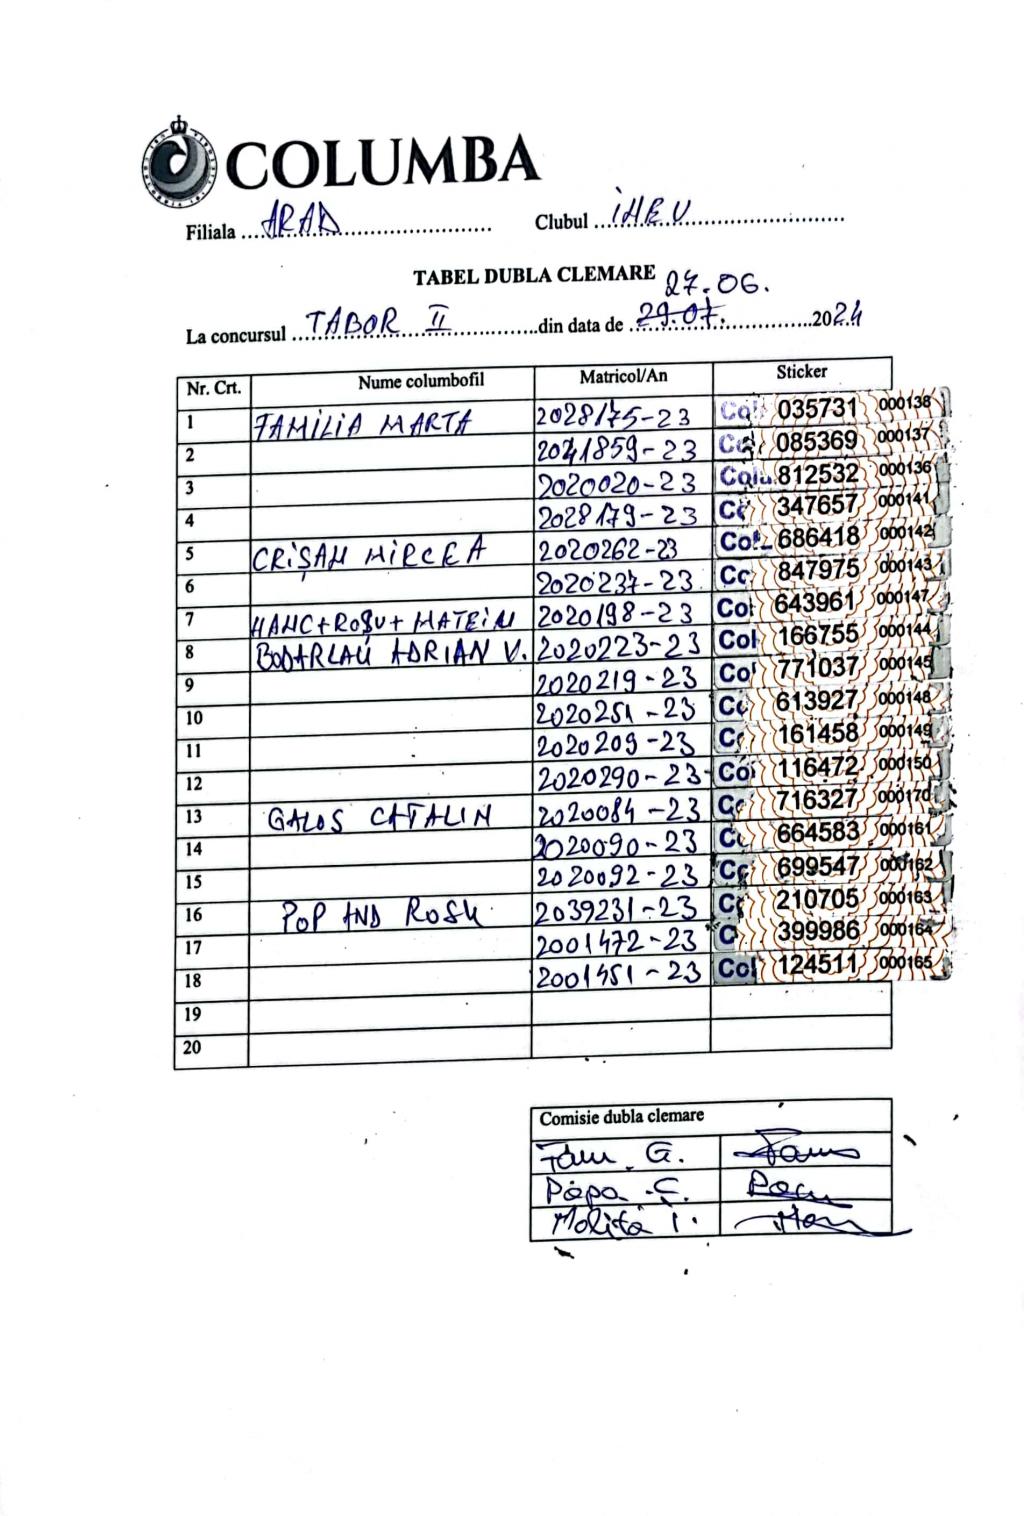 COLUMBA
Filiala ....ARAD............................ Clubul ...INEU............................
TABEL DUBLA CLEMARE 27.06.
La concursul ...TABOR II..................din data de ...29.07...................2024
Nr. Crt. Nume columbofil Matricol/An Sticker
1 FAMILIA MARTA 2028175-23 Col 035731 000138
2 2041859-23 085369 000137
3 2020020-23 Colu 812532 000136
4 2028179-23 347657 000141
5 CRIŞAN MIRCEA 2020262-23 Col 686418 000142
6 2020237-23 847975 000143
7 HANC+ROŞU+MATEIN 2020198-23 Col 643961 000147
8 BODARLAU ADRIAN V. 2020223-23 Col 166755 000144
9 2020219-23 Col 771037 000145
10 2020251-23 613927 000148
11 2020209-23 161458 000149
12 2020290-23 Co 116472 000150
13 GALOS CATALIN 2020084-23 716327 000170
14 2020090-23 664583 000161
15 2020092-23 699547 000162
16 POP AND ROSU 2039231-23 210705 000163
17 2001472-23 399986 000164
18 2001451-23 Col 124511 000165
19
20
Comisie dubla clemare
G.
Papa C.